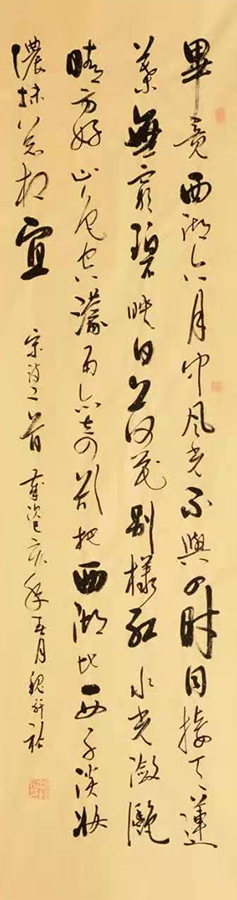 畢竟西湖六月中风光不與四时同接天蓮
葉無窮碧映日荷花别樣红水光瀲灩
晴方好山色空濛雨亦奇欲把西湖比西子淡妆
濃抹总相宜 宋诗二首 歲次己亥年五月